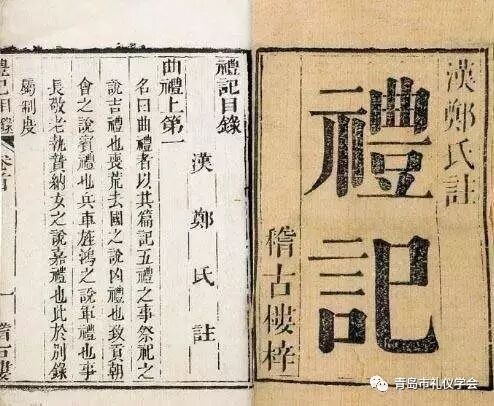 漢鄭氏註
禮記
稽古樓梓
禮記目錄
漢鄭氏註
曲禮上第一
名曰曲禮者以其篇記五禮之事祭祀之
說吉禮也喪荒去國之說凶禮也致貢朝
會之說賓禮也兵車旌鴻之說軍禮也事
長敬老執贄納女之說嘉禮也此於別錄
屬制度
禮記目錄
一
稽古樓
青岛市礼仪学会